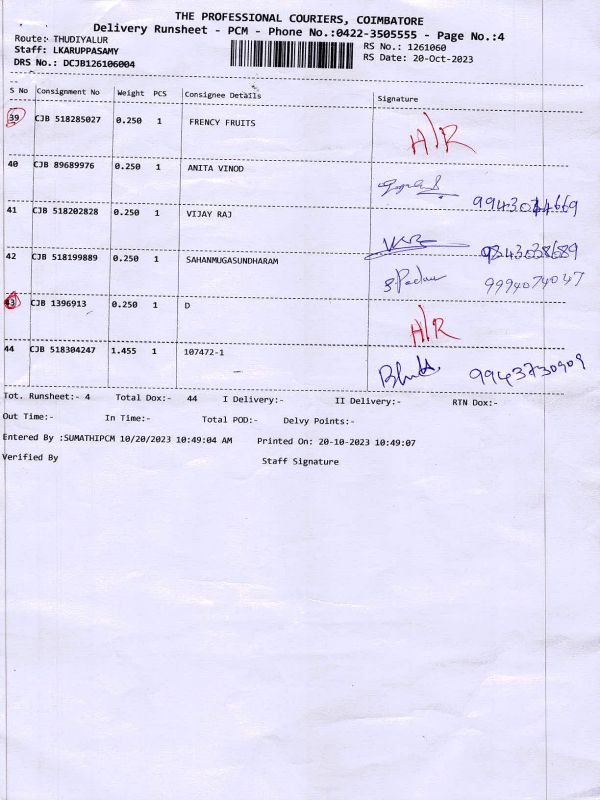 THE PROFESSIONAL COURIERS, COIMBATORE
Delivery Runsheet - PCM - Phone No.:0422-3505555 - Page No.:4
Route:- THUDIYALUR
RS No.: 1261060
Staff: LKARUPPASAMY
RS Date: 20-Oct-2023
DRS No.: DCJB126106004
S No Consignment No Weight PCS Consignee Details Signature
39 CJB 518285027 0.250 1 FRENCY FRUITS H/R
40 CJB 89689976 0.250 1 ANITA VINOD
41 CJB 518202828 0.250 1 VIJAY RAJ
9843038689
42 CJB 518199889 0.250 1 SAHANMUGASUNDHARAM
9994074047
43 CJB 1396913 0.250 1 D H/R
44 CJB 518304247 1.455 1 107472-1
9943730909
Tot. Runsheet:- 4 Total Dox:- 44 I Delivery:- II Delivery:- RTN Dox:-
Out Time:- In Time:- Total POD:- Delvy Points:-
Entered By :SUMATHIPCM 10/20/2023 10:49:04 AM Printed On: 20-10-2023 10:49:07
Verified By Staff Signature